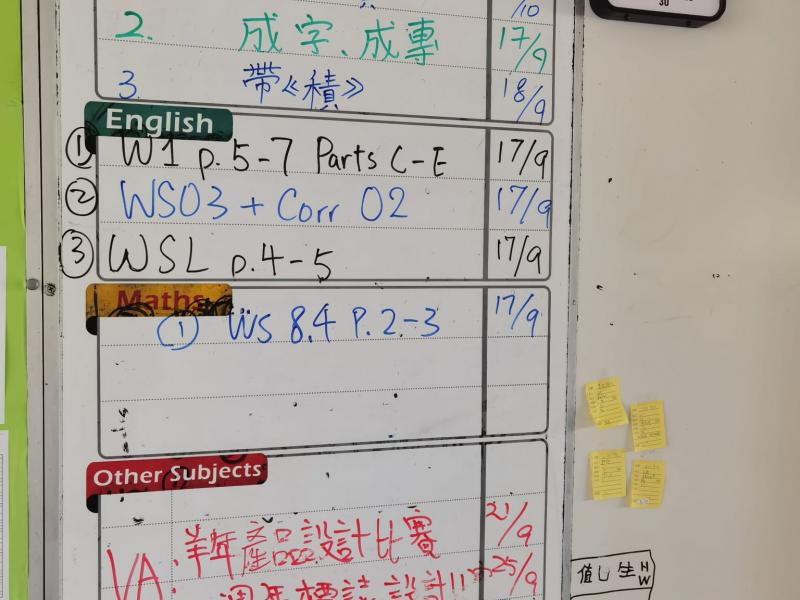 30
/10
2. 成字、成專 17/9
3. 帶《積》 18/9
English
① W1 p.5-7 Parts C-E 17/9
② WS03 + Corr 02 17/9
③ WSL p.4-5 17/9
Maths
① WS 8.4 P.2-3 17/9
Other Subjects
VA. 羊年產品設計比賽 21/9
週年標誌設計 25/9
值日生
HW